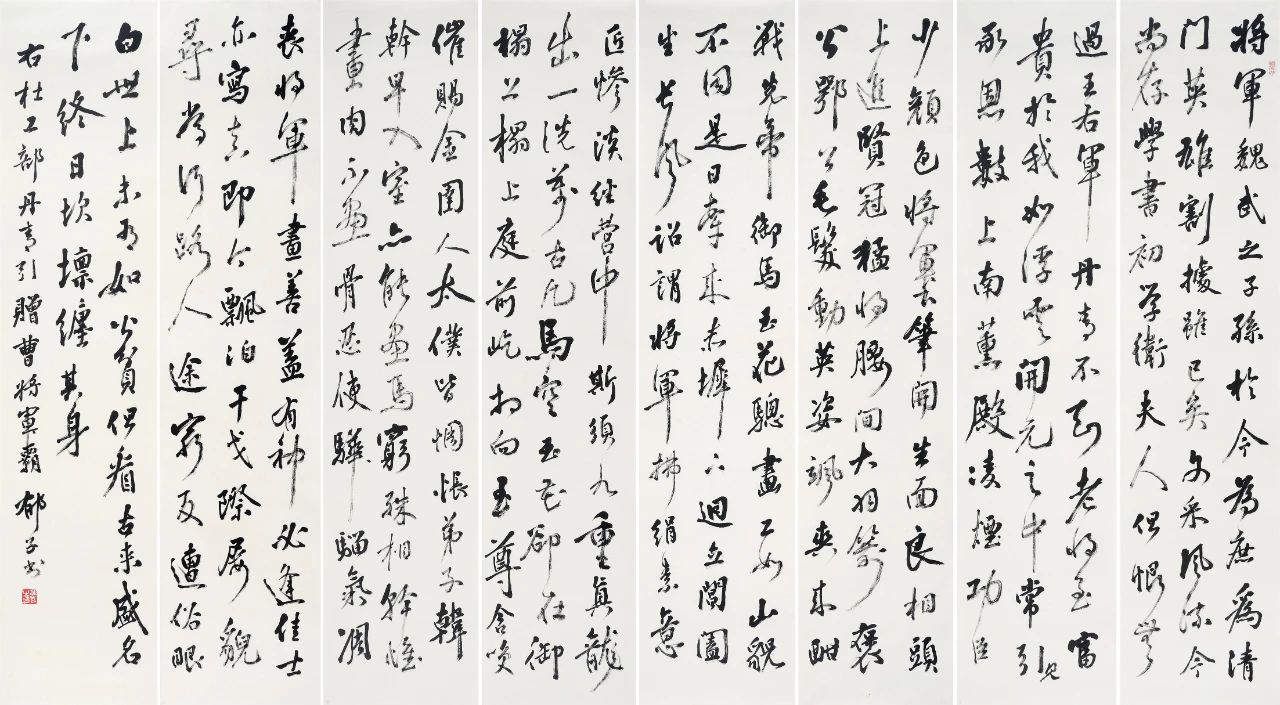 將軍魏武之子孫於今為庶為清
门英雄割據雖已矣文采風流今
尚存學書初學衛夫人但恨無
過王右軍丹青不知老將至富
貴於我如浮雲開元之中常引見
承恩數上南薰殿凌煙功臣
少顏色將軍下筆開生面良相頭
上進賢冠猛將腰間大羽箭褒
公鄂公毛髮動英姿颯爽來酣
戰先帝御馬玉花驄畫工如山貌
不同是日牽來赤墀下迴立閶闔
生長風詔謂將軍拂絹素意
匠慘淡經營中斯須九重真龍
出一洗萬古凡馬空玉花卻在御
榻上榻上庭前屹相向至尊含笑
催賜金圉人太僕皆惆悵弟子韓
幹早入室亦能畫馬窮殊相幹惟
畫肉不畫骨忍使驊騮氣凋
喪將軍畫善蓋有神必逢佳士
亦寫真即今飄泊干戈際屢貌
尋常行路人途窮反遭俗眼
白世上未有如公貧但看古來盛名
下終日坎壈纏其身
右杜工部丹青引贈曹將軍霸 郁子書